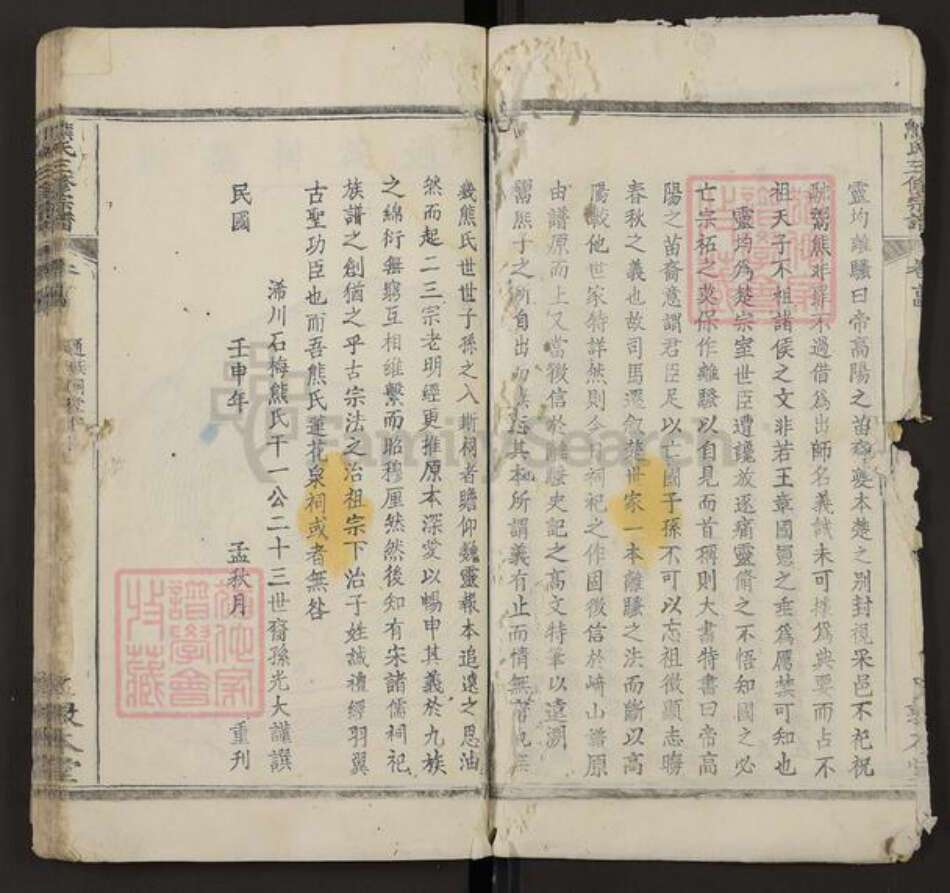 靈均離騷曰帝高陽之苗裔夔本楚之別封視采邑不祀祝
鬻熊非罪不過借為出師名義誠未可據為典要而占不
祖天子不祖諸侯之文非若王章國憲之垂為厲禁可知也
靈均為楚宗室世臣遭讒放逐痛靈脩之不悟知國之必
亡宗祏之莫保作離騷以自見而首稱則大書特書曰帝高
陽之苗裔意謂君臣足以亡國子孫不可以忘祖微顯志晦
春秋之義也故司馬遷叙楚世家一本離騷之法而斷以高
陽較他世家特詳然則今日祠祀之作固徵信於﨑山譜原
由譜原而上又當徵信於離騷史記之高文特筆以遠溯
鬻熊子之所自出勿數忘其本所謂義有止而情無窮也
幾熊氏世世子孫之入斯祠者瞻仰巍靈報本追遠之思油
然而起二三宗老明經更推原本深愛以暢申其義於九族
之綿衍無窮互相維繫而昭穆厘然然後知有宋諸儒祠祀
族譜之創猶之乎古宗法之治祖宗下治子姓誠禮經羽翼
古聖功臣也而吾熊氏蓮花泉祠或者無咎
浠川石梅熊氏千一公二十三世裔孫光大謹譔
民國 壬申年 孟秋月 重刊
熊氏三修宗譜
敦本堂
FamilySearch